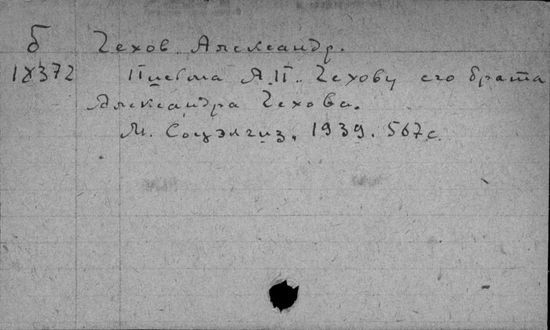 б Чехов Александр.
18372 Письма А.П. Чехову его брата
Александра Чехова.
М. Соцэкгиз, 1939. 567 с.